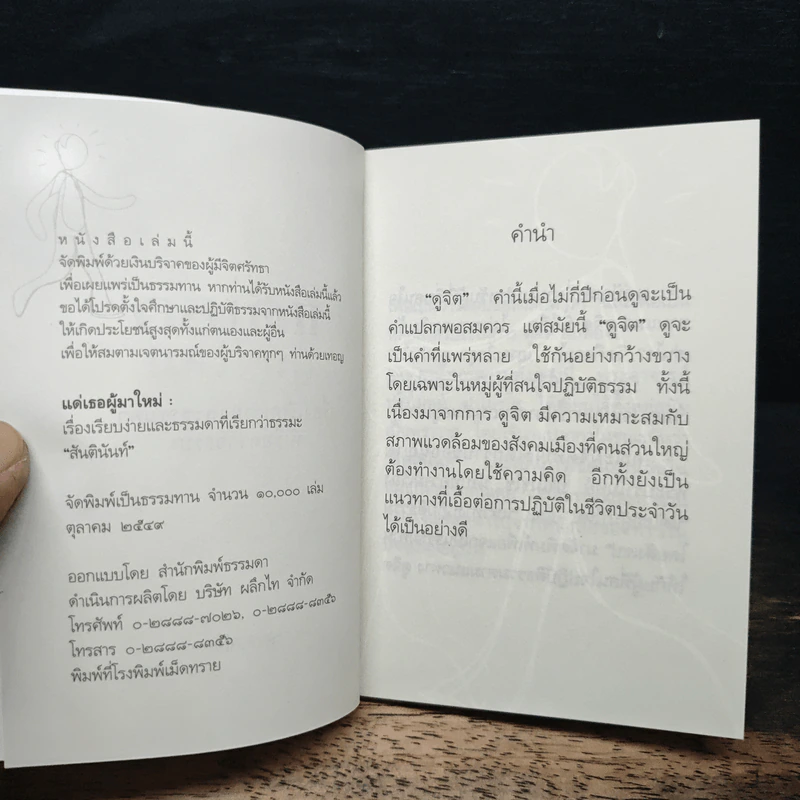 ห นั ง สื อ เ ล่ ม นี้
จัดพิมพ์ด้วยเงินบริจาคของผู้มีจิตศรัทธา
เพื่อเผยแพร่เป็นธรรมทาน หากท่านได้รับหนังสือเล่มนี้แล้ว
ขอได้โปรดตั้งใจศึกษาและปฏิบัติธรรมจากหนังสือเล่มนี้
ให้เกิดประโยชน์สูงสุดทั้งแก่ตนเองและผู้อื่น
เพื่อให้สมตามเจตนารมณ์ของผู้บริจาคทุกๆ ท่านด้วยเทอญ
แด่เธอผู้มาใหม่ :
เรื่องเรียบง่ายและธรรมดาที่เรียกว่าธรรมะ
“สันตินันท์”
จัดพิมพ์เป็นธรรมทาน จำนวน ๑๐,๐๐๐ เล่ม
ตุลาคม ๒๕๔๙
ออกแบบโดย สำนักพิมพ์ธรรมดา
ดำเนินการผลิตโดย บริษัท ผลึกไท จำกัด
โทรศัพท์ ๐-๒๘๘๘-๗๐๒๖, ๐-๒๘๘๘-๘๓๕๖
โทรสาร ๐-๒๘๘๘-๘๓๕๖
พิมพ์ที่โรงพิมพ์เม็ดทราย
คำนำ
“ดูจิต” คำนี้เมื่อไม่กี่ปีก่อนดูจะเป็น
คำแปลกพอสมควร แต่สมัยนี้ “ดูจิต” ดูจะ
เป็นคำที่แพร่หลาย ใช้กันอย่างกว้างขวาง
โดยเฉพาะในหมู่ผู้ที่สนใจปฏิบัติธรรม ทั้งนี้
เนื่องมาจากการ ดูจิต มีความเหมาะสมกับ
สภาพแวดล้อมของสังคมเมืองที่คนส่วนใหญ่
ต้องทำงานโดยใช้ความคิด อีกทั้งยังเป็น
แนวทางที่เอื้อต่อการปฏิบัติในชีวิตประจำวัน
ได้เป็นอย่างดี